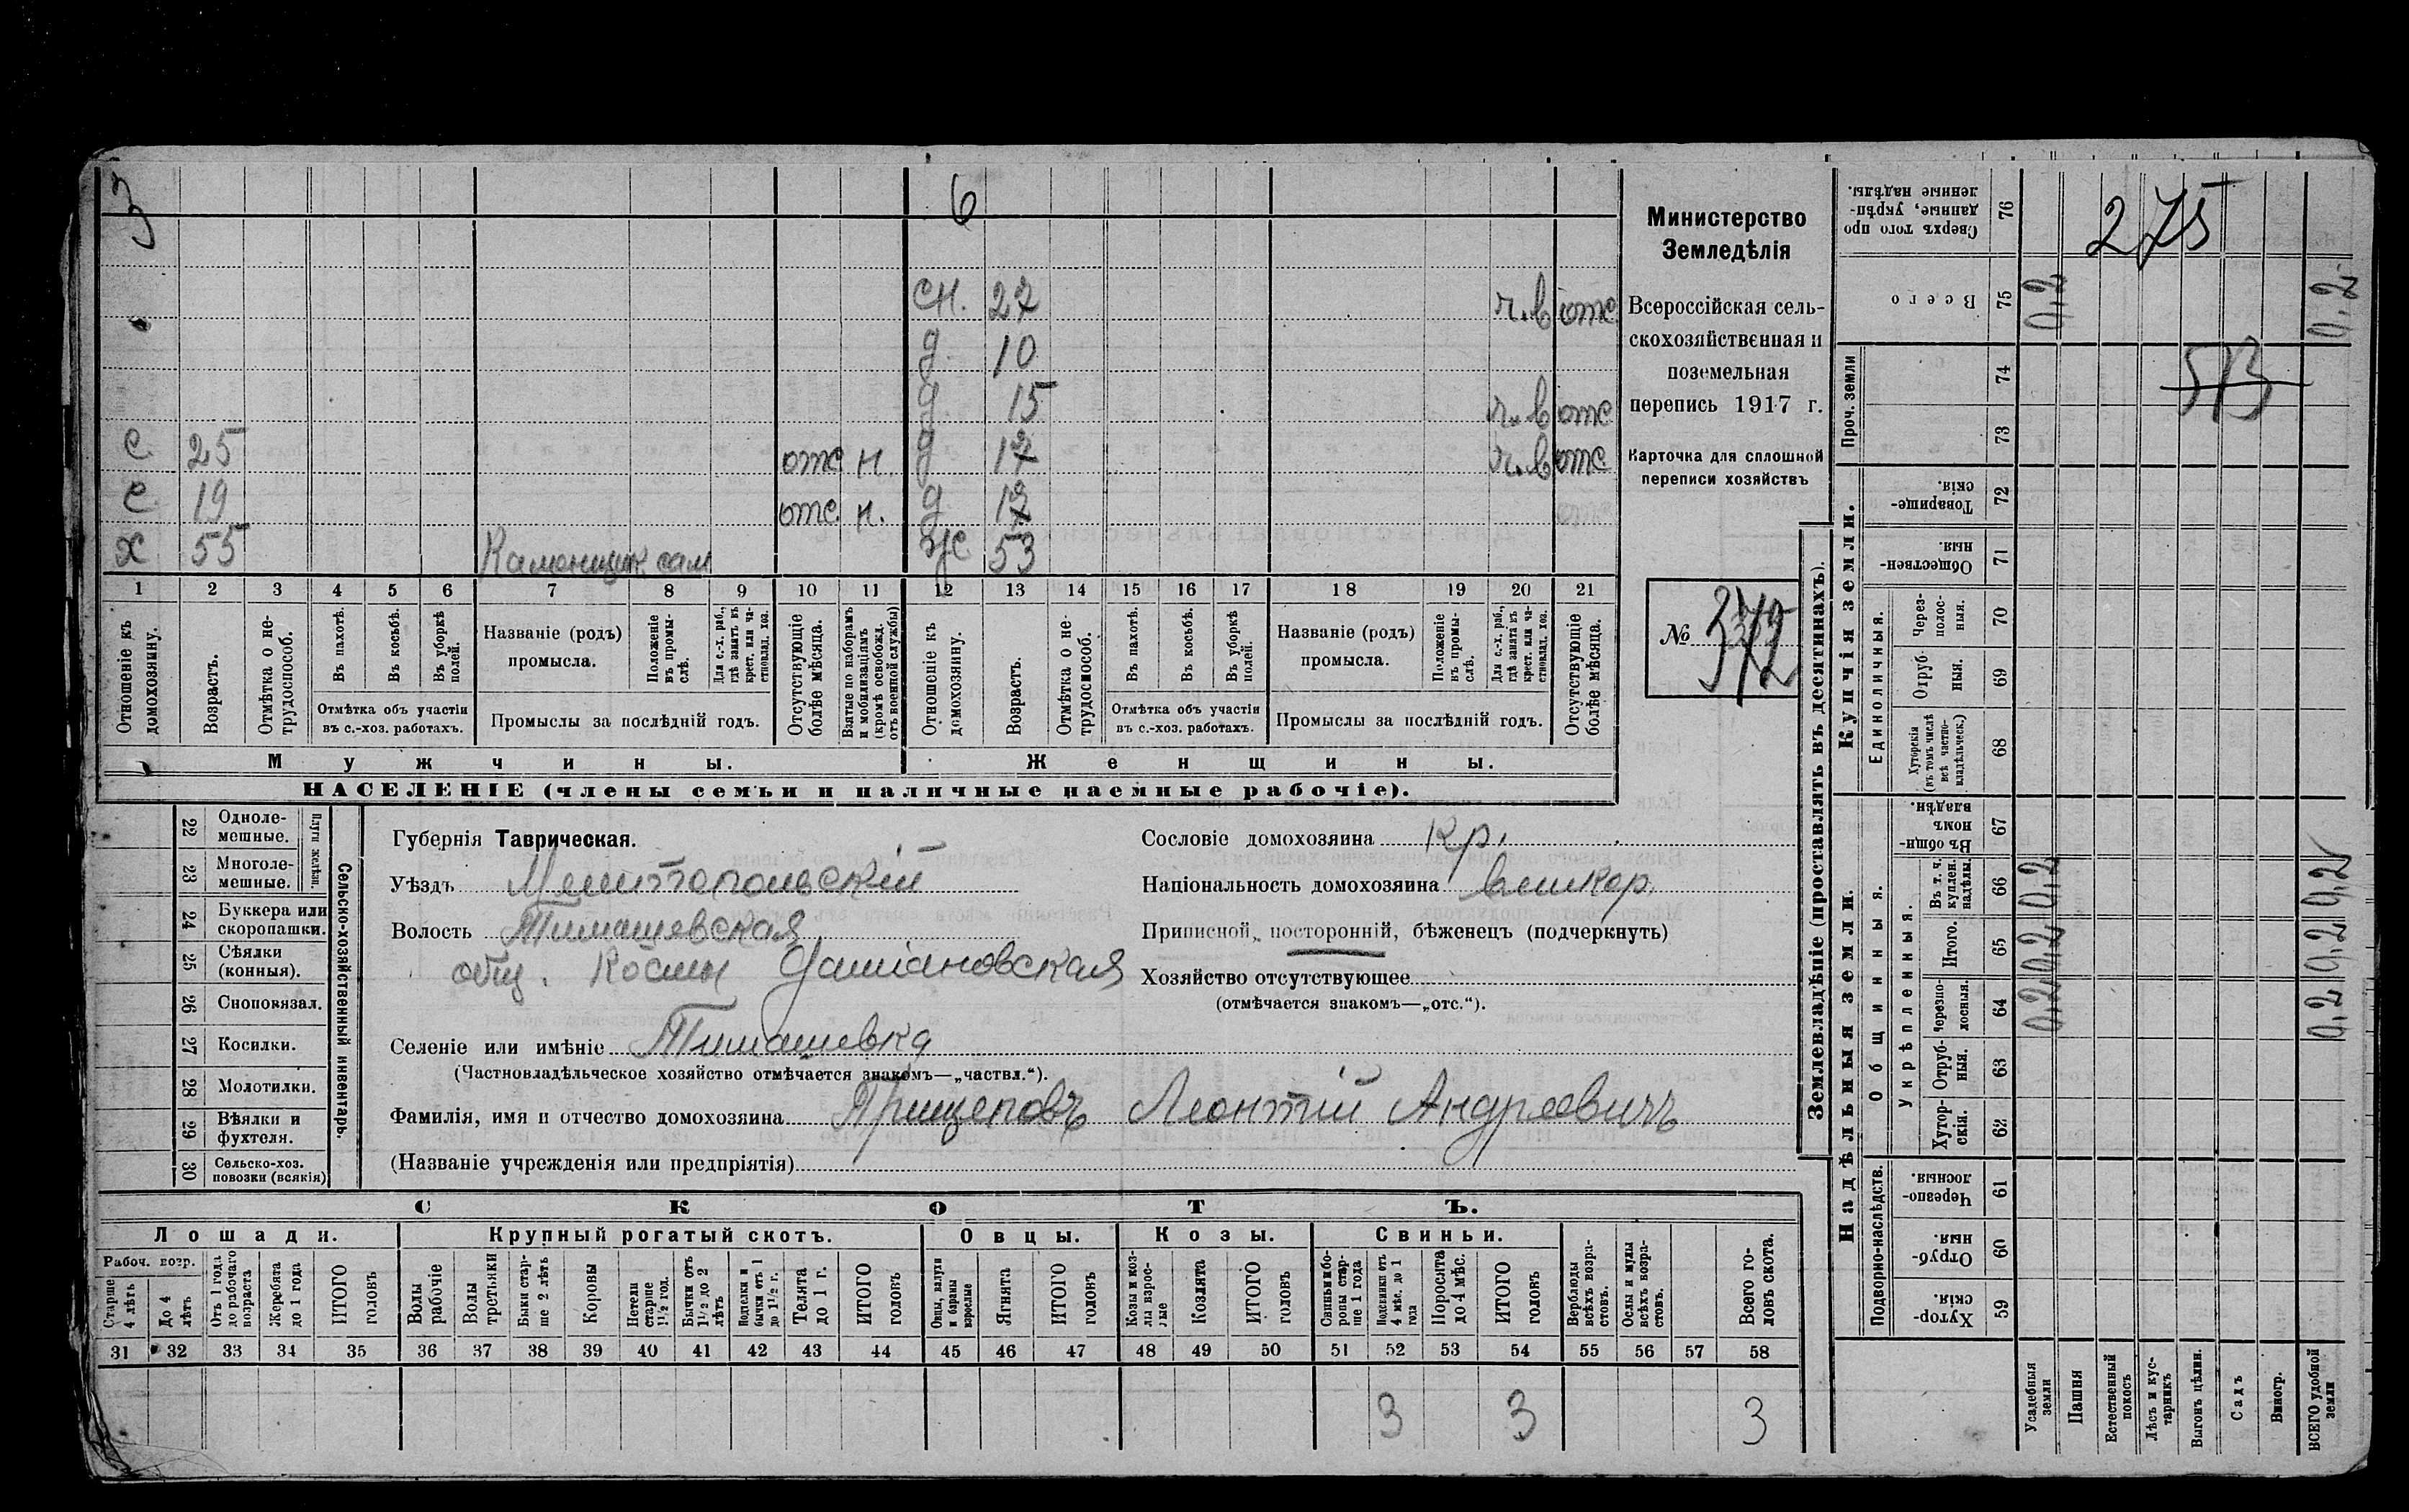 3 6
сн. 27 ч.в отс.
д 10
д 15 ч.в отс
с 25 отс н. д 17 ч.в отс
с 19 отс. н. д
х 55 Каменщик сам ж 53
1 2 3 4 5 6 7 8 9 10 11 12 13 14 15 16 17 18 19 20 21
Отношеніе къ домохозяину.
Возрастъ.
Отмѣтка о нетрудоспособ.
Въ пахотѣ.
Въ косьбѣ.
Въ уборкѣ полей.
Отмѣтка объ участіи
въ с.-хоз. работахъ.
Названіе (родъ)
промысла.
Положеніе въ промыслѣ.
Для с.-х. раб., гдѣ занятъ въ крест. или частновлад. хоз.
Промыслы за послѣдній годъ.
Отсутствующіе болѣе мѣсяца.
Взятые по наборамъ и мобилизаціямъ (кромѣ освобожд. отъ военной службы)
Отношеніе къ домохозяину.
Возрастъ.
Отмѣтка о нетрудоспособ.
Въ пахотѣ.
Въ косьбѣ.
Въ уборкѣ полей.
Отмѣтка объ участіи
въ с.-хоз. работахъ.
Названіе (родъ)
промысла.
Положеніе въ промыслѣ.
Для с.-х. раб., гдѣ занята въ крест. или частновлад. хоз.
Промыслы за послѣдній годъ.
Отсутствующіе болѣе мѣсяца.
Мужчины.
Женщины.
НАСЕЛЕНІЕ (члены семьи и наличные наемные рабочіе).
Министерство
Земледѣлія
Всероссійская сель-
скохозяйственная и
поземельная
перепись 1917 г.
Карточка для сплошной
переписи хозяйствъ
№
22 Одноле-
мешные.
23 Многоле-
мешные.
Плуги желѣзн.
24 Буккера или
скоропашки.
25 Сѣялки
(конныя).
26 Сноповязал.
27 Косилки.
28 Молотилки.
29 Вѣялки и
фухтеля.
30 Сельско-хоз.
повозки (всякія)
Сельско-хозяйственный инвентарь.
Губернія Таврическая.
Уѣздъ Мелитопольскій
Волость Тимашевская
общ. Косьмы Даміановская
Селеніе или имѣніе Тимашевка
(Частновладѣльческое хозяйство отмѣчается знакомъ—„частвл.“).
Фамилія, имя и отчество домохозяина Прищеповъ Леонтій Андреевичъ
(Названіе учрежденія или предпріятія)
Сословіе домохозяина кр.
Національность домохозяина великор.
Приписной, посторонній, бѣженец (подчеркнуть)
Хозяйство отсутствующее
(отмѣчается знакомъ—„отс.“).
СКОТЪ.
Лошади. Крупный рогатый скотъ. Овцы. Козы. Свиньи.
Рабоч. возр.
Старше 4 лѣтъ
До 4 лѣтъ
Отъ 1 года до рабочаго возраста
Жеребята до 1 года
ИТОГО головъ
Волы рабочіе
Волы третьяки
Быки старше 2 лѣтъ
Коровы
Нетели старше 1½ год.
Бычки отъ 1½ до 2 лѣтъ
Подтелки и бычки отъ 1 до 1½ г.
Телята до 1 г.
ИТОГО головъ
Овцы, валухи и бараны взрослые
Ягнята
ИТОГО головъ
Козы и козлы взрослые
Козлята
ИТОГО головъ
Свиньи и боровы старше 1 года
Подсвинки отъ 4 мѣс. до 1 года
Поросята до 4 мѣс.
ИТОГО головъ
Верблюды всѣхъ возрастовъ.
Ослы и мулы всѣхъ возрастовъ.
Всего головъ скота.
31 32 33 34 35 36 37 38 39 40 41 42 43 44 45 46 47 48 49 50 51 52 53 54 55 56 57 58
3 3 3
Землевладѣніе (проставлять въ десятинахъ).
Купчія земли.
Надѣльныя земли.
Сверхъ того проданные, укрѣпленные надѣлы. 76 275
Всего 75 0,2 0,2
Проч. земли 74 73
513
Товарищескія. 72
Общественныя. 71
Единоличныя.
Черезполосныя. 70
Отрубныя. 69
Хуторскія (въ томъ числѣ всѣ частновладѣльческ.) 68
Общинныя.
Въ общинномъ владѣн. 67
Укрѣпленныя.
Въ т. ч. куплен. надѣлы. 66 0,2 0,2
Итого. 65 0,2 0,2
Черезполосныя. 64 0,2 0,2
Отрубныя. 63
Хуторскія. 62
Подворно-наслѣдств.
Черезполосныя. 61
Отрубныя. 60
Хуторскія. 59
Усадебныя земли
Пашня
Естественный покосъ
Лѣсъ и кустарникъ
Выгонъ цѣлин.
Садъ
Виногр.
ВСЕГО удобной земли